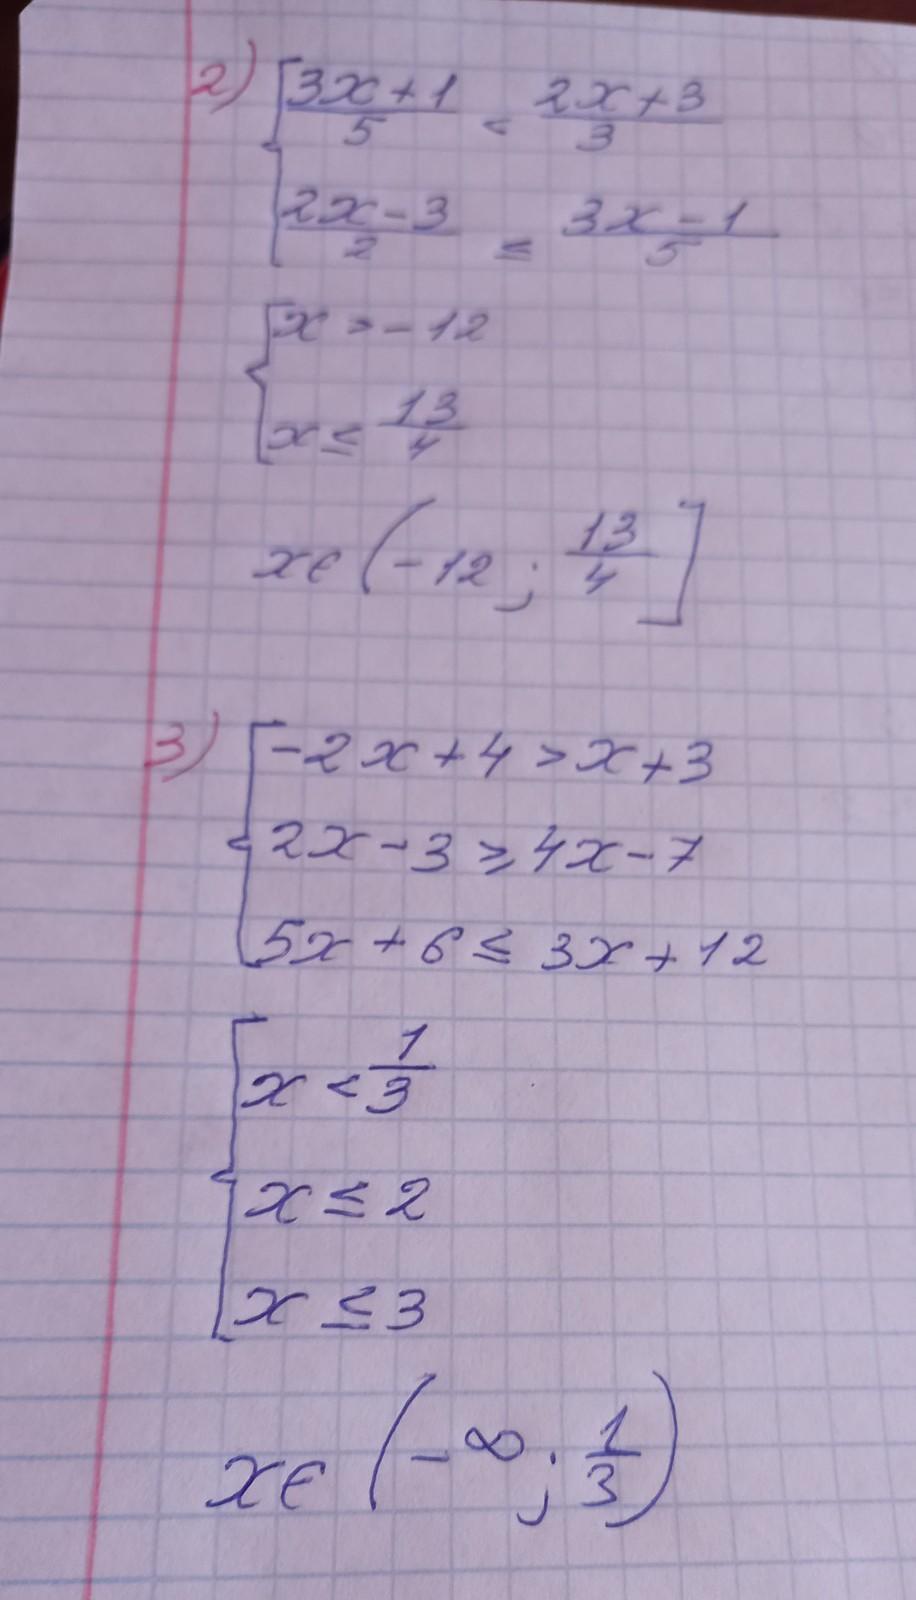 2) { (3x+1)/5 < (2x+3)/3
(2x-3)/2 ≤ (3x-1)/5
{ x > -12
x ≤ 13/4
x ∈ (-12 ; 13/4]
3) { -2x+4 > x+3
2x-3 ≥ 4x-7
5x+6 ≤ 3x+12
{ x < 1/3
x ≤ 2
x ≤ 3
x ∈ (-∞ ; 1/3)